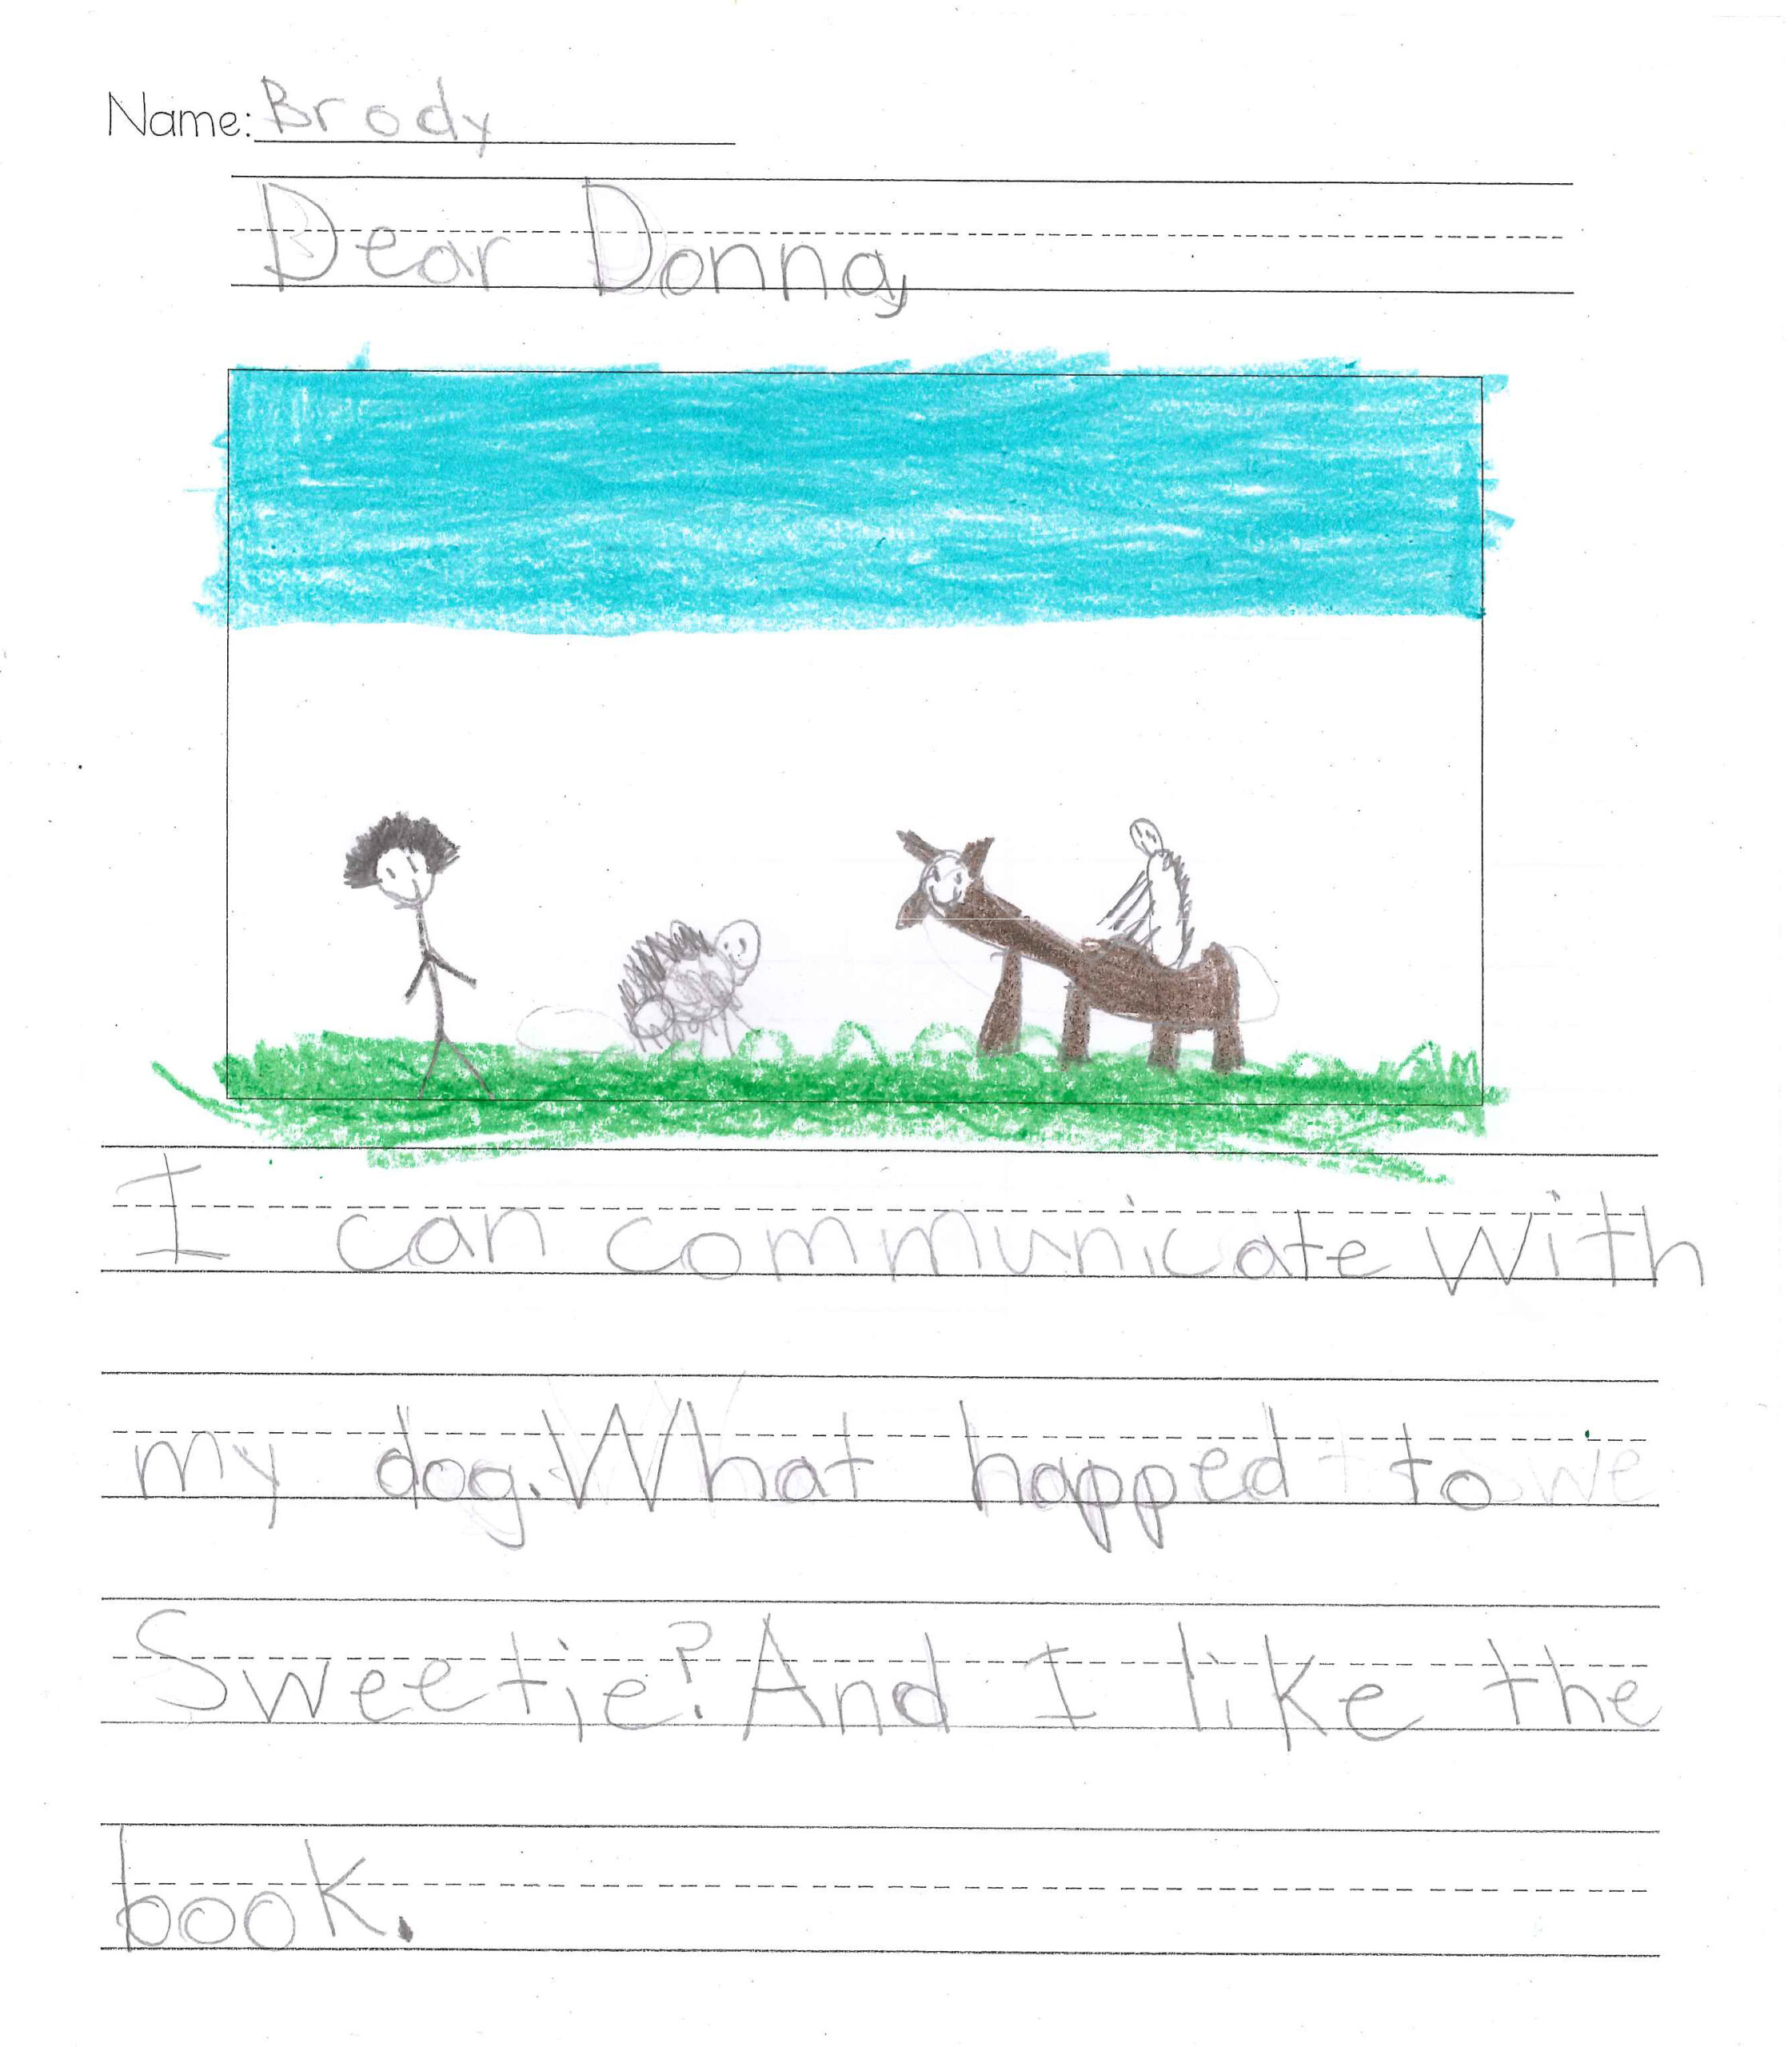 Name: Brody
Dear Donna,
I can communicate with
my dog. What happed to
Sweetie? And I like the
book.